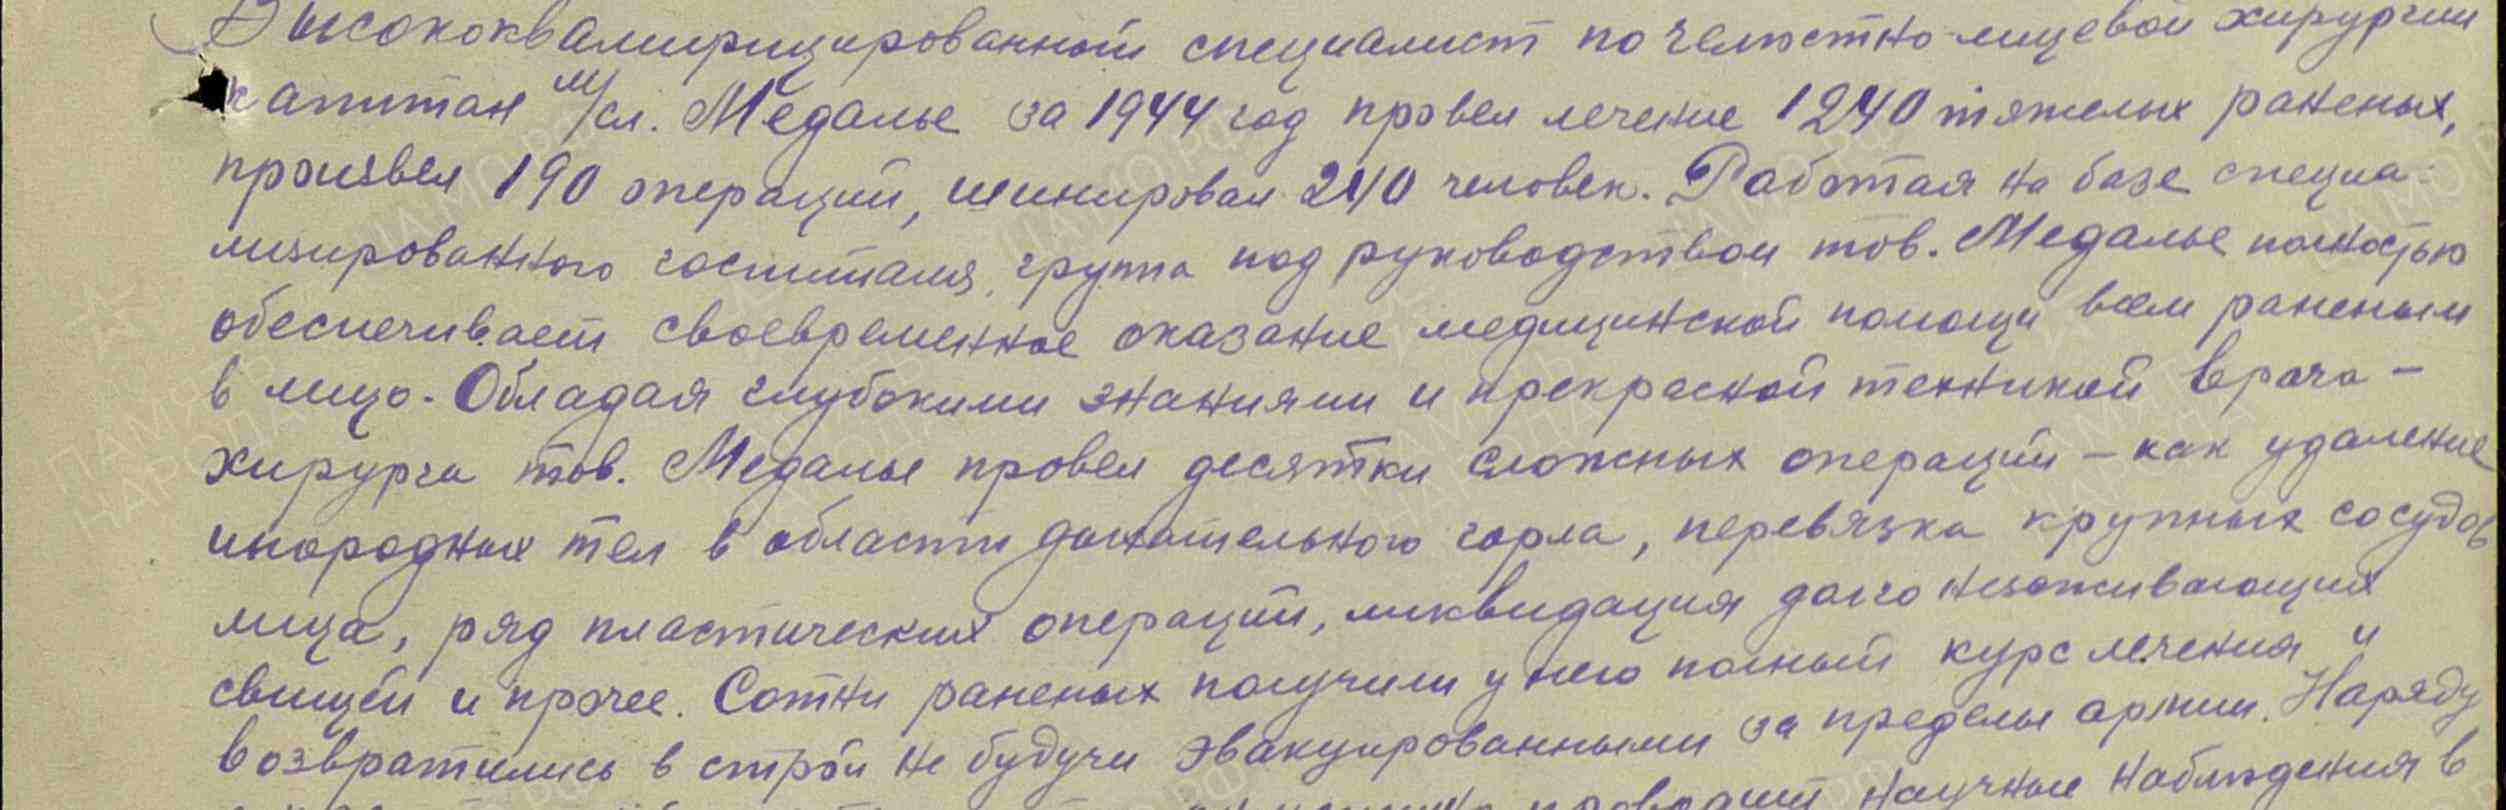 Высококвалифицированный специалист по челюстно-лицевой хирургии
капитан м/сл. Медалье за 1944 год провел лечение 1240 тяжелых раненых,
произвел 190 операций, шинировал 240 человек. Работая на базе специа-
лизированного госпиталя, группа под руководством тов. Медалье полностью
обеспечивает своевременное оказание медицинской помощи всем раненым
в лицо. Обладая глубокими знаниями и прекрасной техникой врача-
хирурга тов. Медалье провел десятки сложных операций - как удаление
инородных тел в области дыхательного горла, перевязка крупных сосудов
лица, ряд пластических операций, ликвидация долго незаживающих
свищей и прочее. Сотни раненых получили у него полный курс лечения и
возвратились в строй не будучи эвакуированными за пределы армии. Наряду
проводит научные наблюдения в